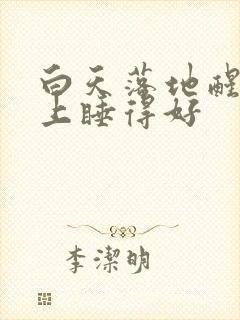 白天落地醒
上睡得好
李潔明